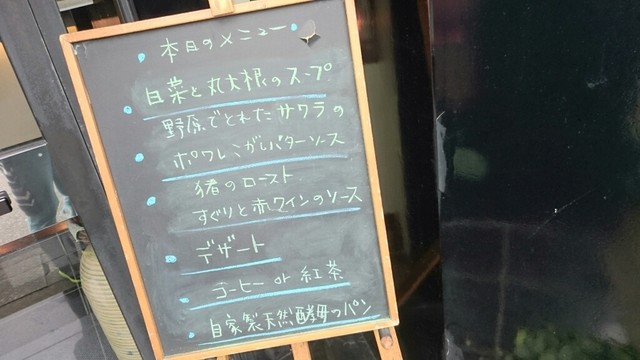 本日のメニュー
白菜と丸大根のスープ
野原でとれたサワラの
ポワレこがしバターソース
猪のロースト
すぐりと赤ワインのソース
デザート
コーヒー or 紅茶
自家製天然酵母のパン